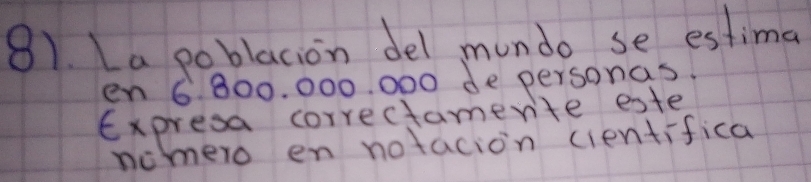 81. La población del mundo se estima
en 6.800.000.000 de personas.
Expresa correctamente este
número en notación científica